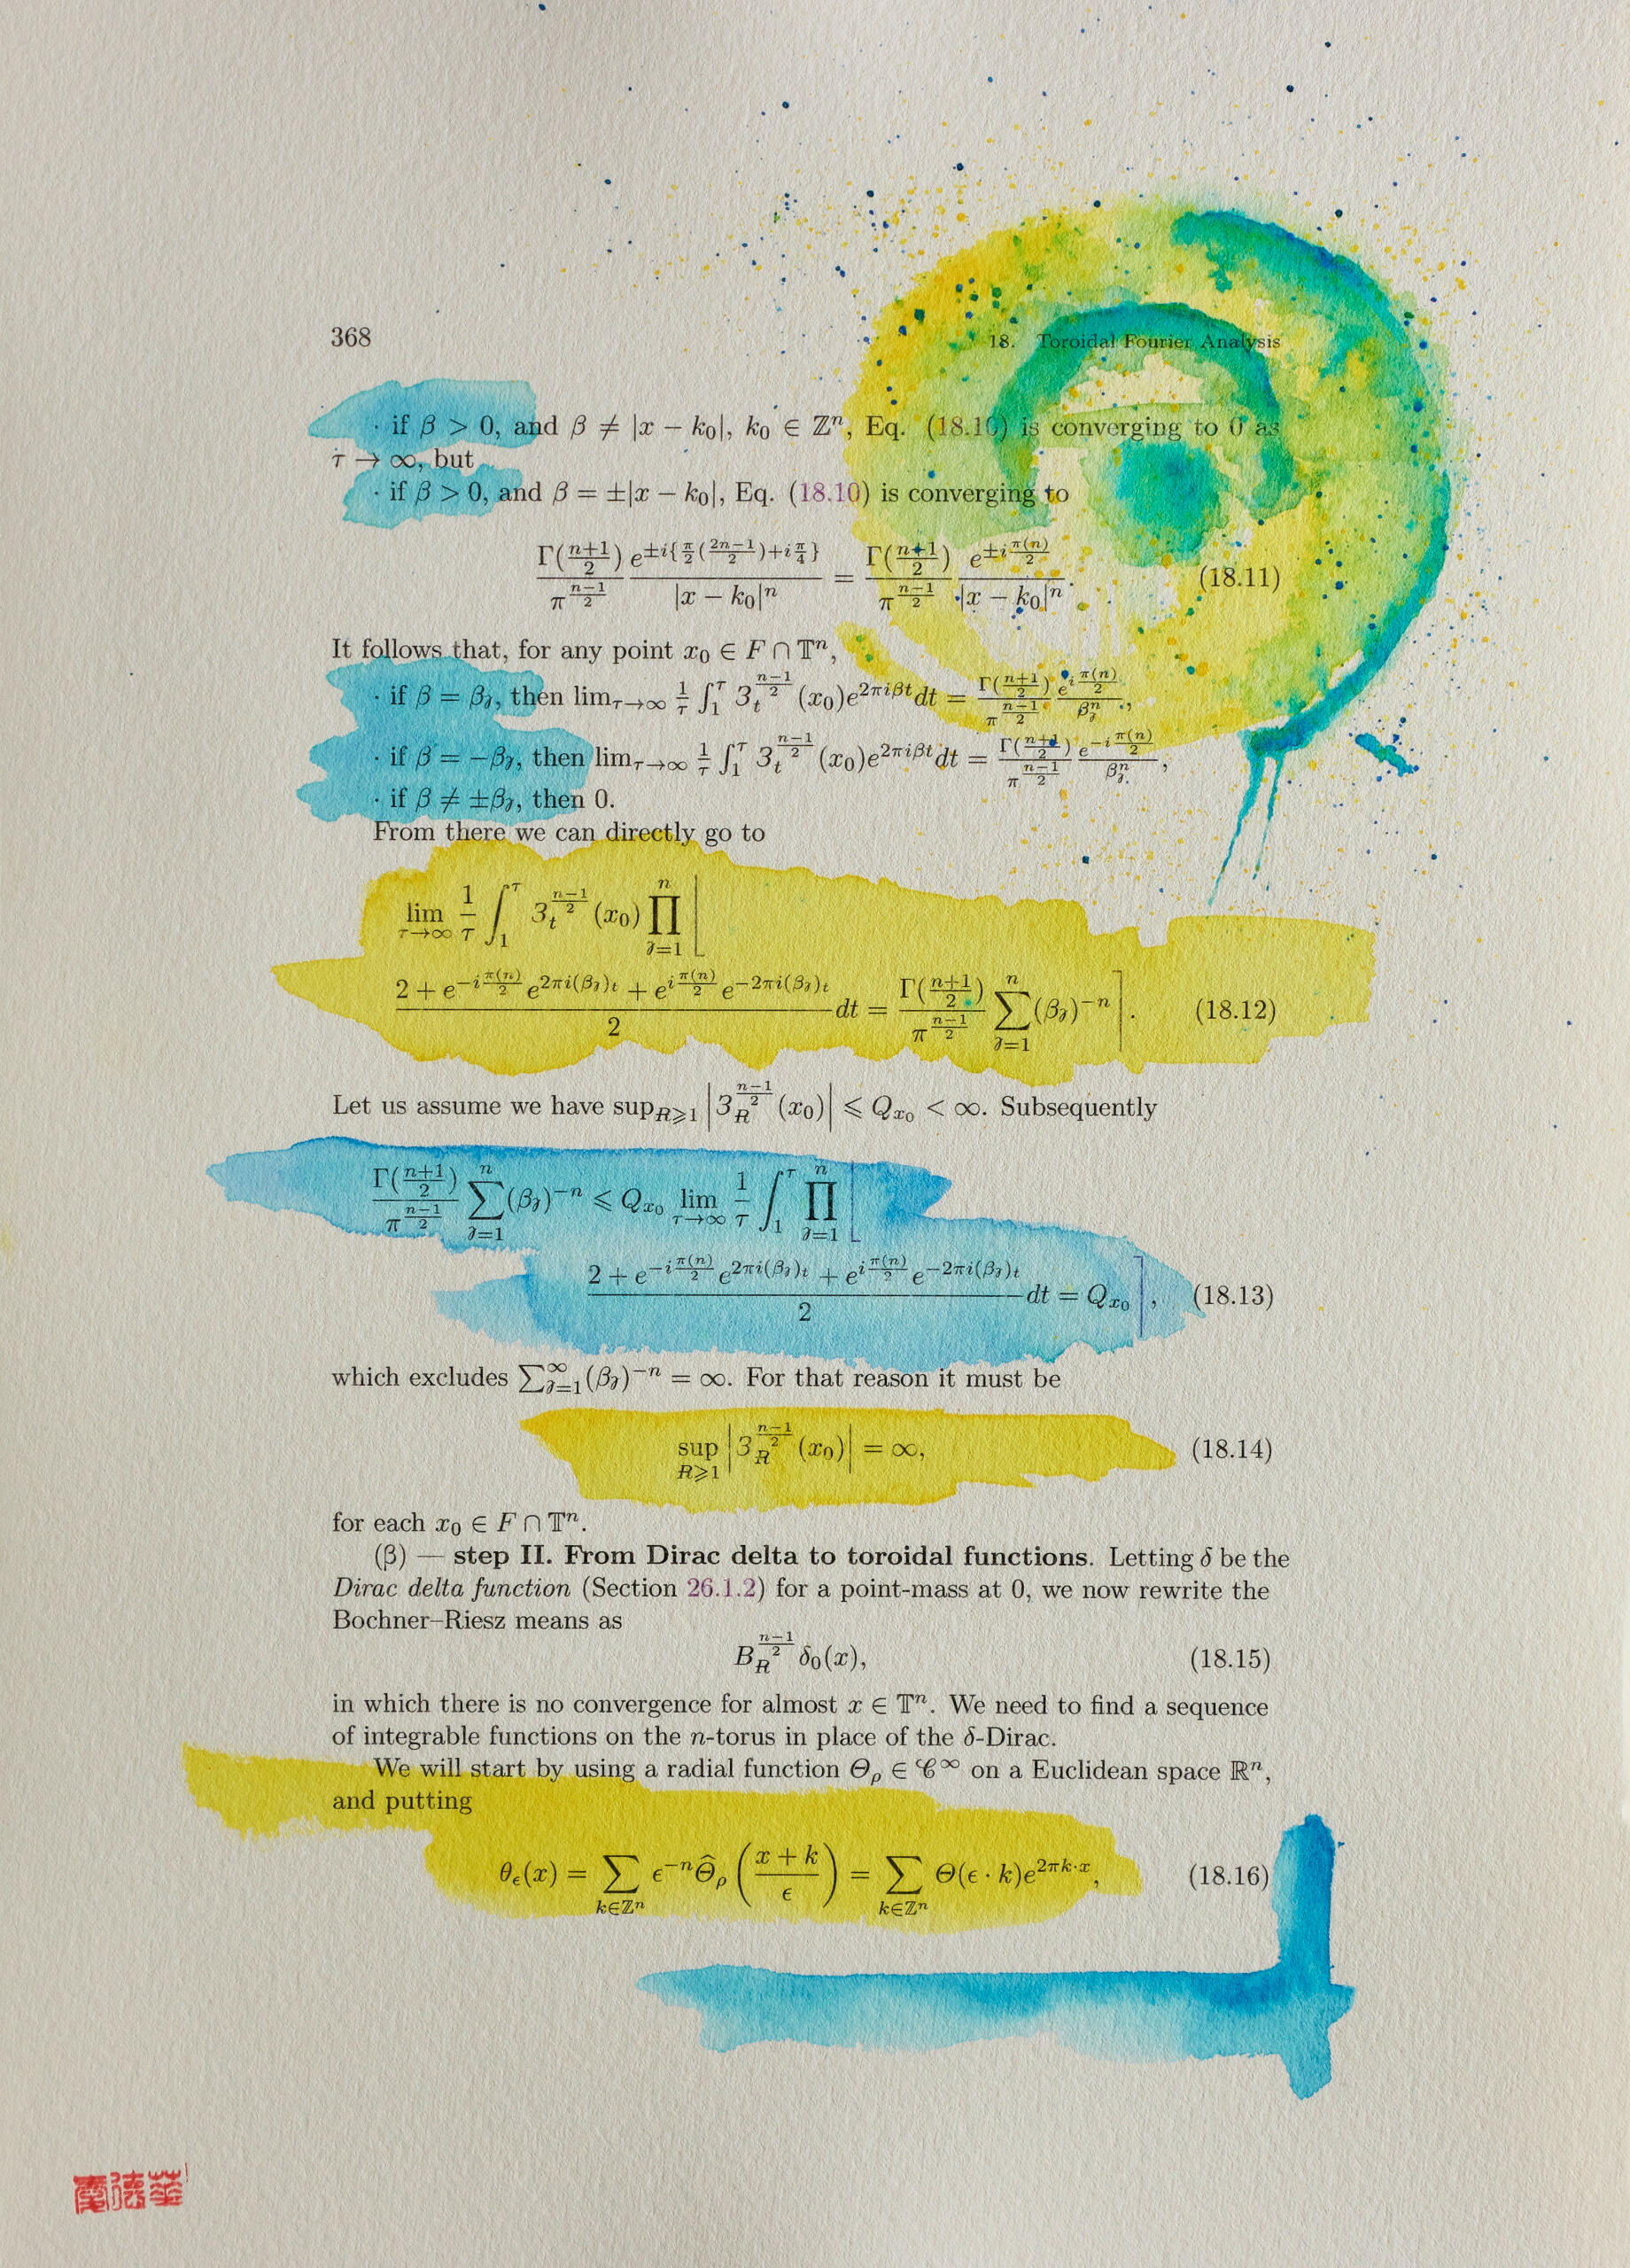 368
18. Toroidal Fourier Analysis
· if β > 0, and β ≠ |x − k₀|, k₀ ∈ ℤⁿ, Eq. (18.10) is converging to 0 as
τ → ∞, but
· if β > 0, and β = ±|x − k₀|, Eq. (18.10) is converging to
\frac{Γ(\frac{n+1}{2})}{π^{\frac{n−1}{2}}} \frac{e^{±i\{\frac{π}{2}(\frac{2n−1}{2})+i\frac{π}{4}\}}}{|x − k₀|ⁿ} = \frac{Γ(\frac{n+1}{2})}{π^{\frac{n−1}{2}}} \frac{e^{±i\frac{π(n)}{2}}}{|x − k₀|ⁿ}. (18.11)
It follows that, for any point x₀ ∈ F ∩ 𝕋ⁿ,
· if β = βⱼ, then lim_{τ→∞} \frac{1}{τ} ∫₁^τ 3_t^{\frac{n−1}{2}}(x₀)e^{2πiβt}dt = \frac{Γ(\frac{n+1}{2})}{π^{\frac{n−1}{2}}} \frac{e^{i\frac{π(n)}{2}}}{βⱼⁿ},
· if β = −βⱼ, then lim_{τ→∞} \frac{1}{τ} ∫₁^τ 3_t^{\frac{n−1}{2}}(x₀)e^{2πiβt}dt = \frac{Γ(\frac{n+1}{2})}{π^{\frac{n−1}{2}}} \frac{e^{−i\frac{π(n)}{2}}}{βⱼⁿ},
· if β ≠ ±βⱼ, then 0.
From there we can directly go to
lim_{τ→∞} \frac{1}{τ} ∫₁^τ 3_t^{\frac{n−1}{2}}(x₀) ∏_{j=1}^{n} ⌊
\frac{2 + e^{−i\frac{π(n)}{2}} e^{2πi(βⱼ)t} + e^{i\frac{π(n)}{2}} e^{−2πi(βⱼ)t}}{2} dt = \frac{Γ(\frac{n+1}{2})}{π^{\frac{n−1}{2}}} ∑_{j=1}^{n} (βⱼ)^{−n} ⌉. (18.12)
Let us assume we have sup_{R⩾1} |3_R^{\frac{n−1}{2}}(x₀)| ⩽ Q_{x₀} < ∞. Subsequently
\frac{Γ(\frac{n+1}{2})}{π^{\frac{n−1}{2}}} ∑_{j=1}^{n} (βⱼ)^{−n} ⩽ Q_{x₀} lim_{τ→∞} \frac{1}{τ} ∫₁^τ ∏_{j=1}^{n} ⌊
\frac{2 + e^{−i\frac{π(n)}{2}} e^{2πi(βⱼ)t} + e^{i\frac{π(n)}{2}} e^{−2πi(βⱼ)t}}{2} dt = Q_{x₀} ⌉, (18.13)
which excludes ∑_{j=1}^{∞} (βⱼ)^{−n} = ∞. For that reason it must be
sup_{R⩾1} |3_R^{\frac{n−1}{2}}(x₀)| = ∞, (18.14)
for each x₀ ∈ F ∩ 𝕋ⁿ.
(β) — step II. From Dirac delta to toroidal functions. Letting δ be the
Dirac delta function (Section 26.1.2) for a point-mass at 0, we now rewrite the
Bochner–Riesz means as
B_R^{\frac{n−1}{2}} δ₀(x), (18.15)
in which there is no convergence for almost x ∈ 𝕋ⁿ. We need to find a sequence
of integrable functions on the n-torus in place of the δ-Dirac.
We will start by using a radial function Θ_ρ ∈ 𝒞^∞ on a Euclidean space ℝⁿ,
and putting
θ_ϵ(x) = ∑_{k∈ℤⁿ} ϵ^{−n} \hat{Θ}_ρ (\frac{x + k}{ϵ}) = ∑_{k∈ℤⁿ} Θ(ϵ · k)e^{2πk·x}, (18.16)